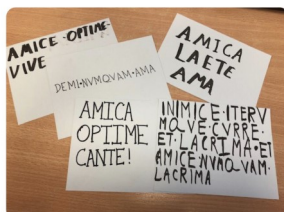 AMICE·OPTIME·
VIVE
DEMI·NVMQVAM·AMA
AMICA
LAETE
AMA
AMICA
OPTIME
CANTE!
INIMICE·ITERV
MQVE·CVRRE·
ET·LACRIMA·ET
AMICE·NVNQVAM·
LACRIMA